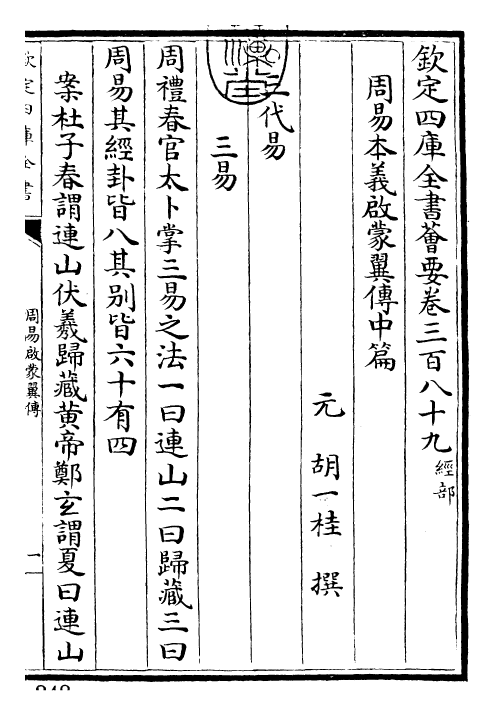 欽定四庫全書薈要卷三百八十九經部
周易本義啟蒙翼傳中篇
元 胡一桂 撰
三代易
三易
周禮春官太卜掌三易之法一曰連山二曰歸藏三曰
周易其經卦皆八其别皆六十有四
案杜子春謂連山伏羲歸藏黄帝鄭玄謂夏曰連山
欽定四庫全書
周易啟蒙翼傳
一